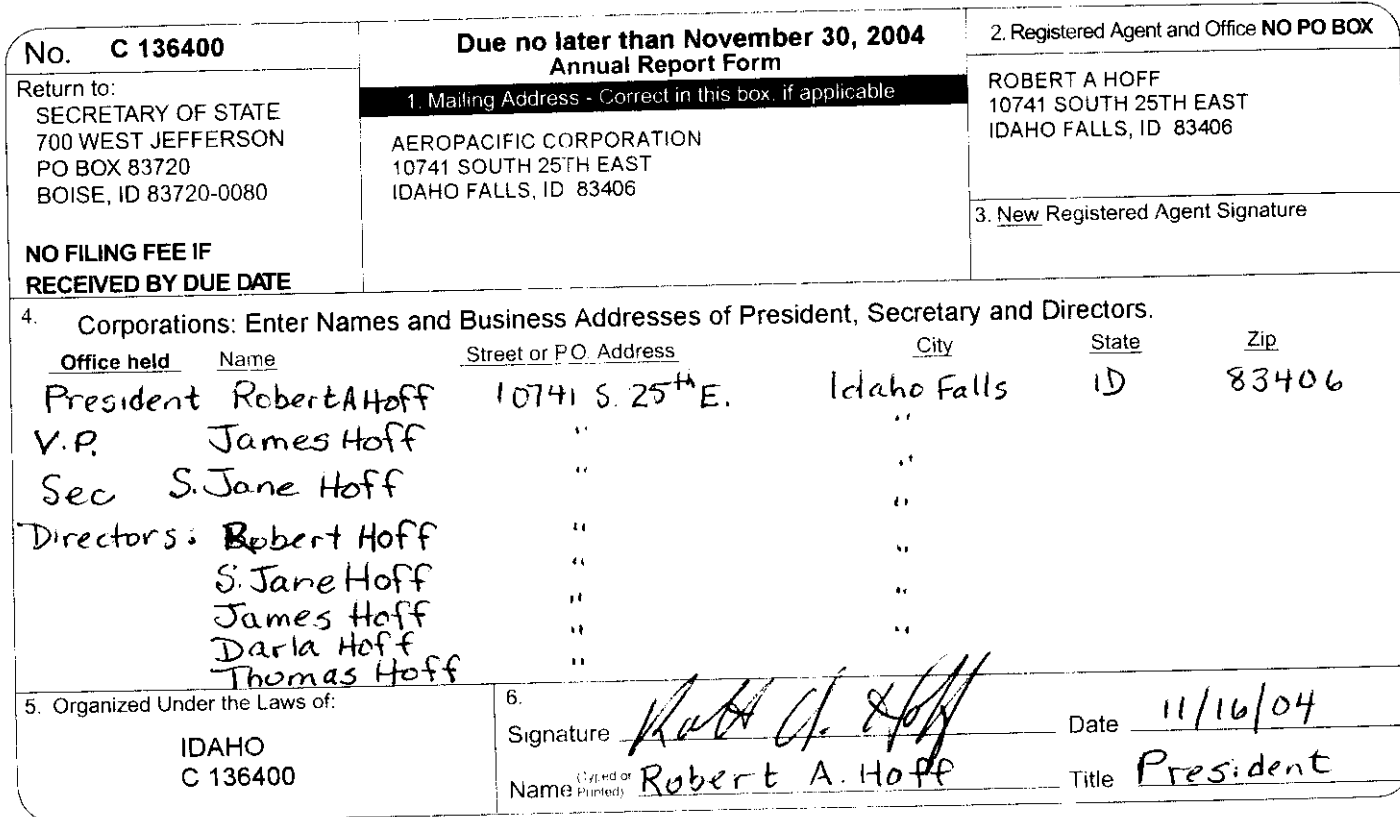 No. C 136400
Return to:
SECRETARY OF STATE
700 WEST JEFFERSON
PO BOX 83720
BOISE, ID 83720-0080
NO FILING FEE IF
RECEIVED BY DUE DATE
Due no later than November 30, 2004
Annual Report Form
1. Mailing Address - Correct in this box, if applicable
AEROPACIFIC CORPORATION
10741 SOUTH 25TH EAST
IDAHO FALLS, ID 83406
2. Registered Agent and Office NO PO BOX
ROBERT A HOFF
10741 SOUTH 25TH EAST
IDAHO FALLS, ID 83406
3. New Registered Agent Signature
4. Corporations: Enter Names and Business Addresses of President, Secretary and Directors.
Office held Name Street or P.O. Address City State Zip
President Robert A Hoff 10741 S. 25th E. Idaho Falls ID 83406
V.P. James Hoff " "
Sec S. Jane Hoff " "
Directors: Robert Hoff " "
S. Jane Hoff " "
James Hoff " "
Darla Hoff " "
Thomas Hoff "
5. Organized Under the Laws of:
IDAHO
C 136400
6.
Signature Robt A. Hoff Date 11/16/04
Name (Typed or Printed) Robert A. Hoff Title President